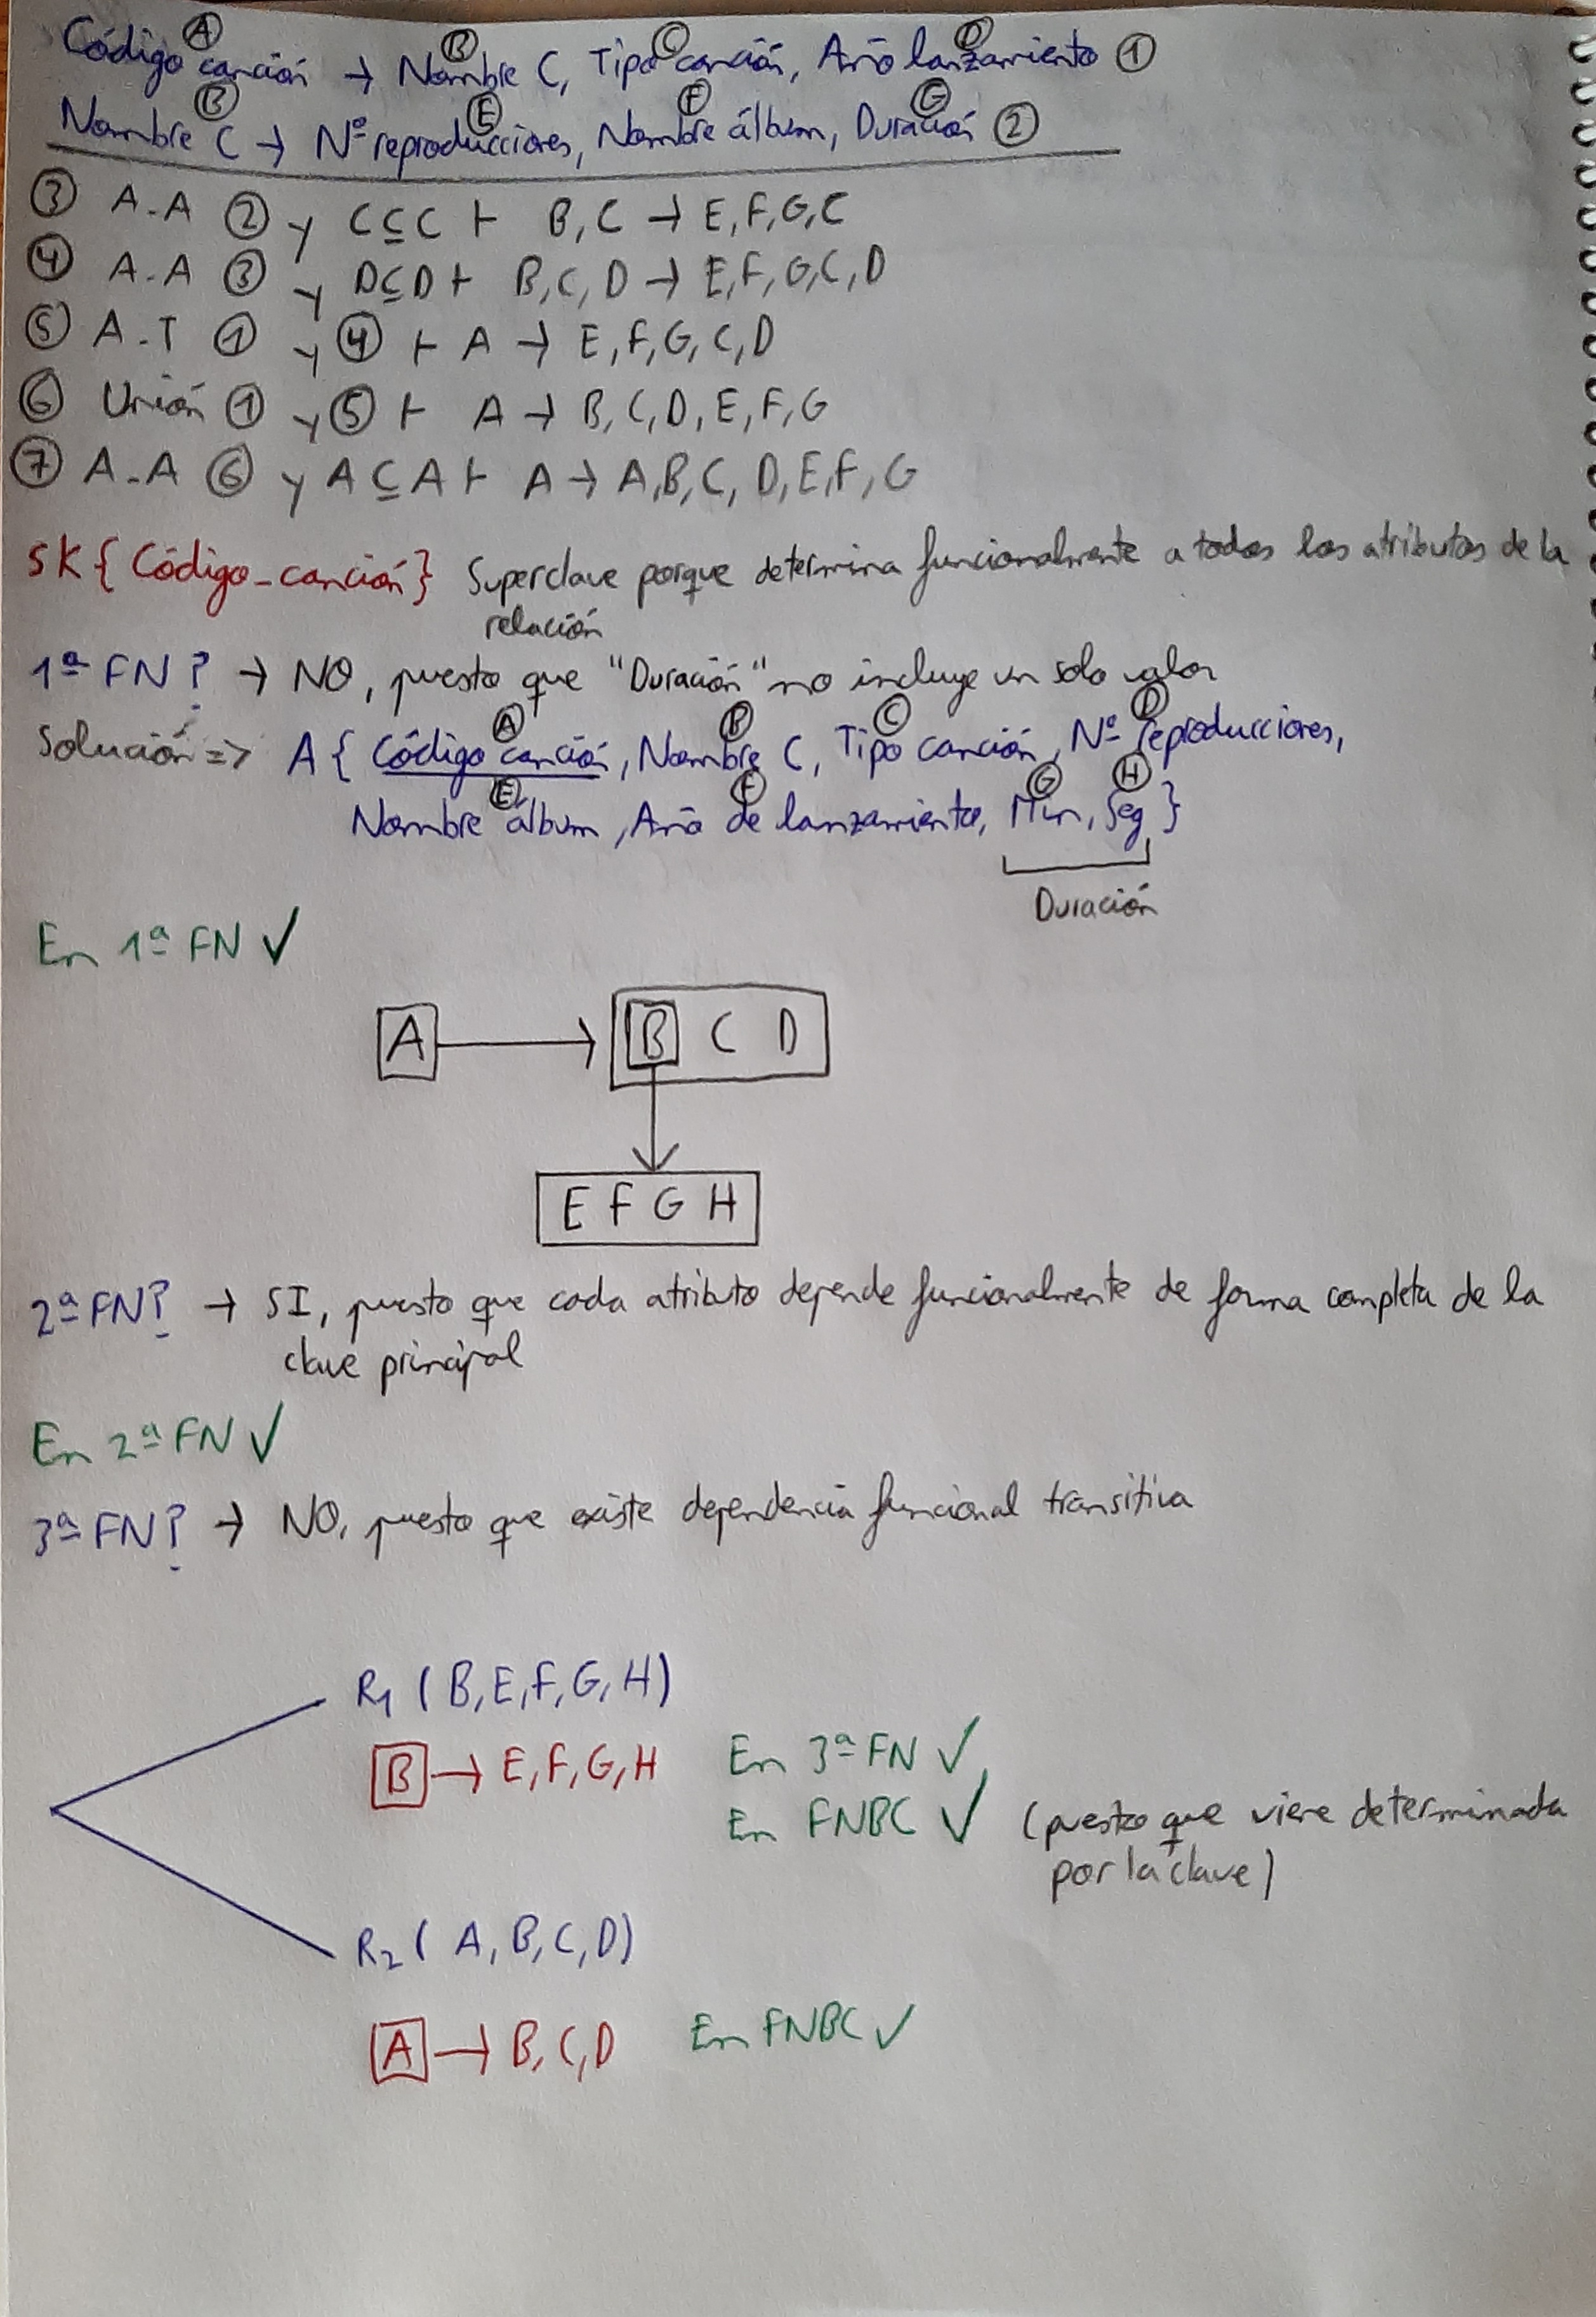 Código canción → Nombre C, Tipo canción, Año lanzamiento ①
Ⓐ Ⓑ Ⓒ Ⓓ
Nombre C → Nº reproducciones, Nombre álbum, Duración ②
Ⓑ Ⓔ Ⓕ Ⓖ
③ A-A ② y C⊆C ⊢ B,C → E,F,G,C
④ A-A ③ y D⊆D ⊢ B,C,D → E,F,G,C,D
⑤ A-T ① y ④ ⊢ A → E,F,G,C,D
⑥ Unión ① y ⑤ ⊢ A → B,C,D,E,F,G
⑦ A-A ⑥ y A⊆A ⊢ A → A,B,C,D,E,F,G
SK{Código_canción} Superclave porque determina funcionalmente a todos los atributos de la
relación
1ª FN? → NO, puesto que "Duración" no incluye un solo valor
Solución => A { Código canción, Nombre C, Tipo canción, Nº reproducciones,
Ⓐ Ⓑ Ⓒ Ⓓ
Nombre álbum, Año de lanzamiento, Min, Seg }
Ⓔ Ⓕ Ⓖ Ⓗ
Duración
En 1ª FN ✓
A → B C D
E F G H
2ª FN? → SI, puesto que cada atributo depende funcionalmente de forma completa de la
clave principal
En 2ª FN ✓
3ª FN? → NO, puesto que existe dependencia funcional transitiva
R1 (B,E,F,G,H)
B → E,F,G,H En 3ª FN ✓
En FNBC ✓ (puesto que viene determinada
por la clave)
R2 (A,B,C,D)
A → B,C,D En FNBC ✓